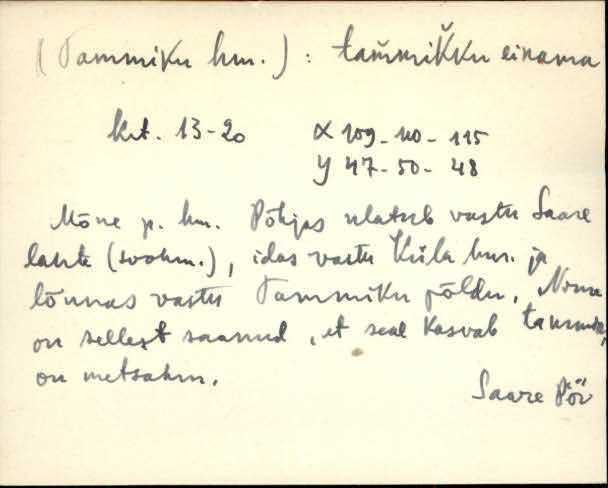 (Tammiku hm.) : tam̆mik̆ku einama
krt. 13-20 X 109-110-115
Y 47-50-48
Mõne p. hm. Põhjas ulatub vastu Saare
lahte (soohm.), idas vastu Küla hm. ja
lõunas vastu Tammiku põldu. Nime
on sellest saanud, et seal kasvab tammik,
on metsahm.
Saare Pöi